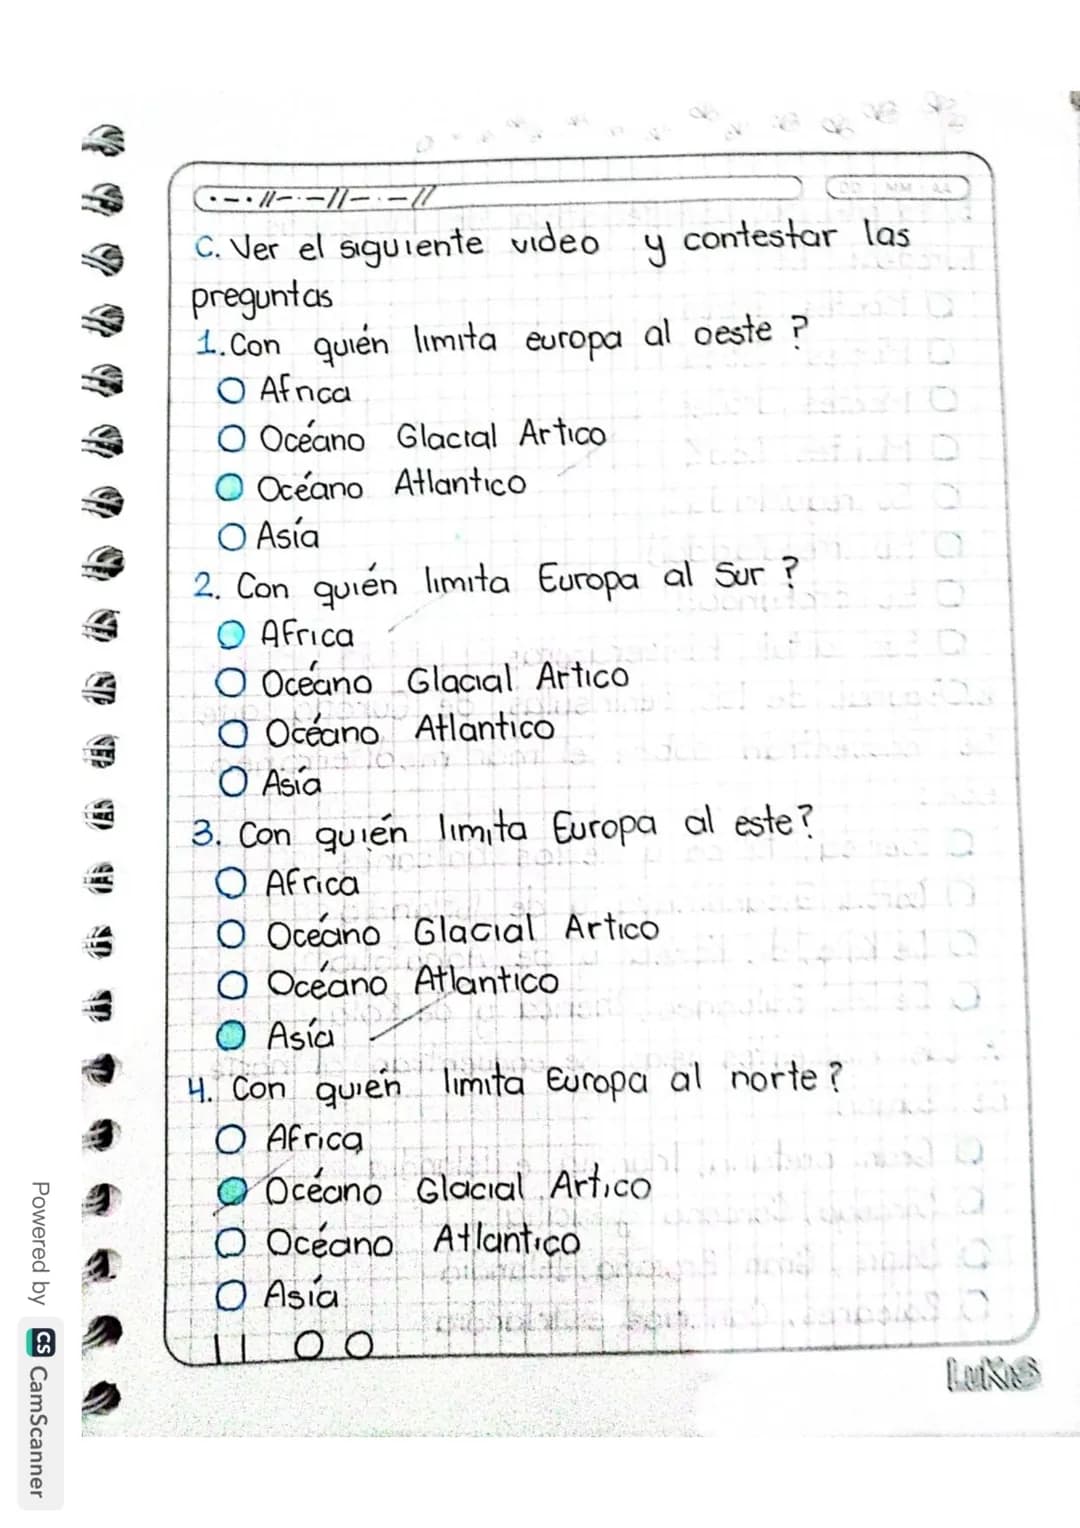 DD MM AA
C. Ver el siguiente video y contestar las
preguntas
1. Con quién limita europa al oeste ?
Africa
Océano Glacial Artico
Océano Atlantico
Asía
2. Con quién limita Europa al Sur ?
Africa
Océano Glacial Artico
Océano Atlantico
Asía
3. Con quién limita Europa al este?
Africa
Océano Glacial Artico
Océano Atlantico
Asía
4. Con quién limita Europa al norte ?
Africa
Océano Glacial Artico
Océano Atlantico
Asía
Powered by CS CamScanner